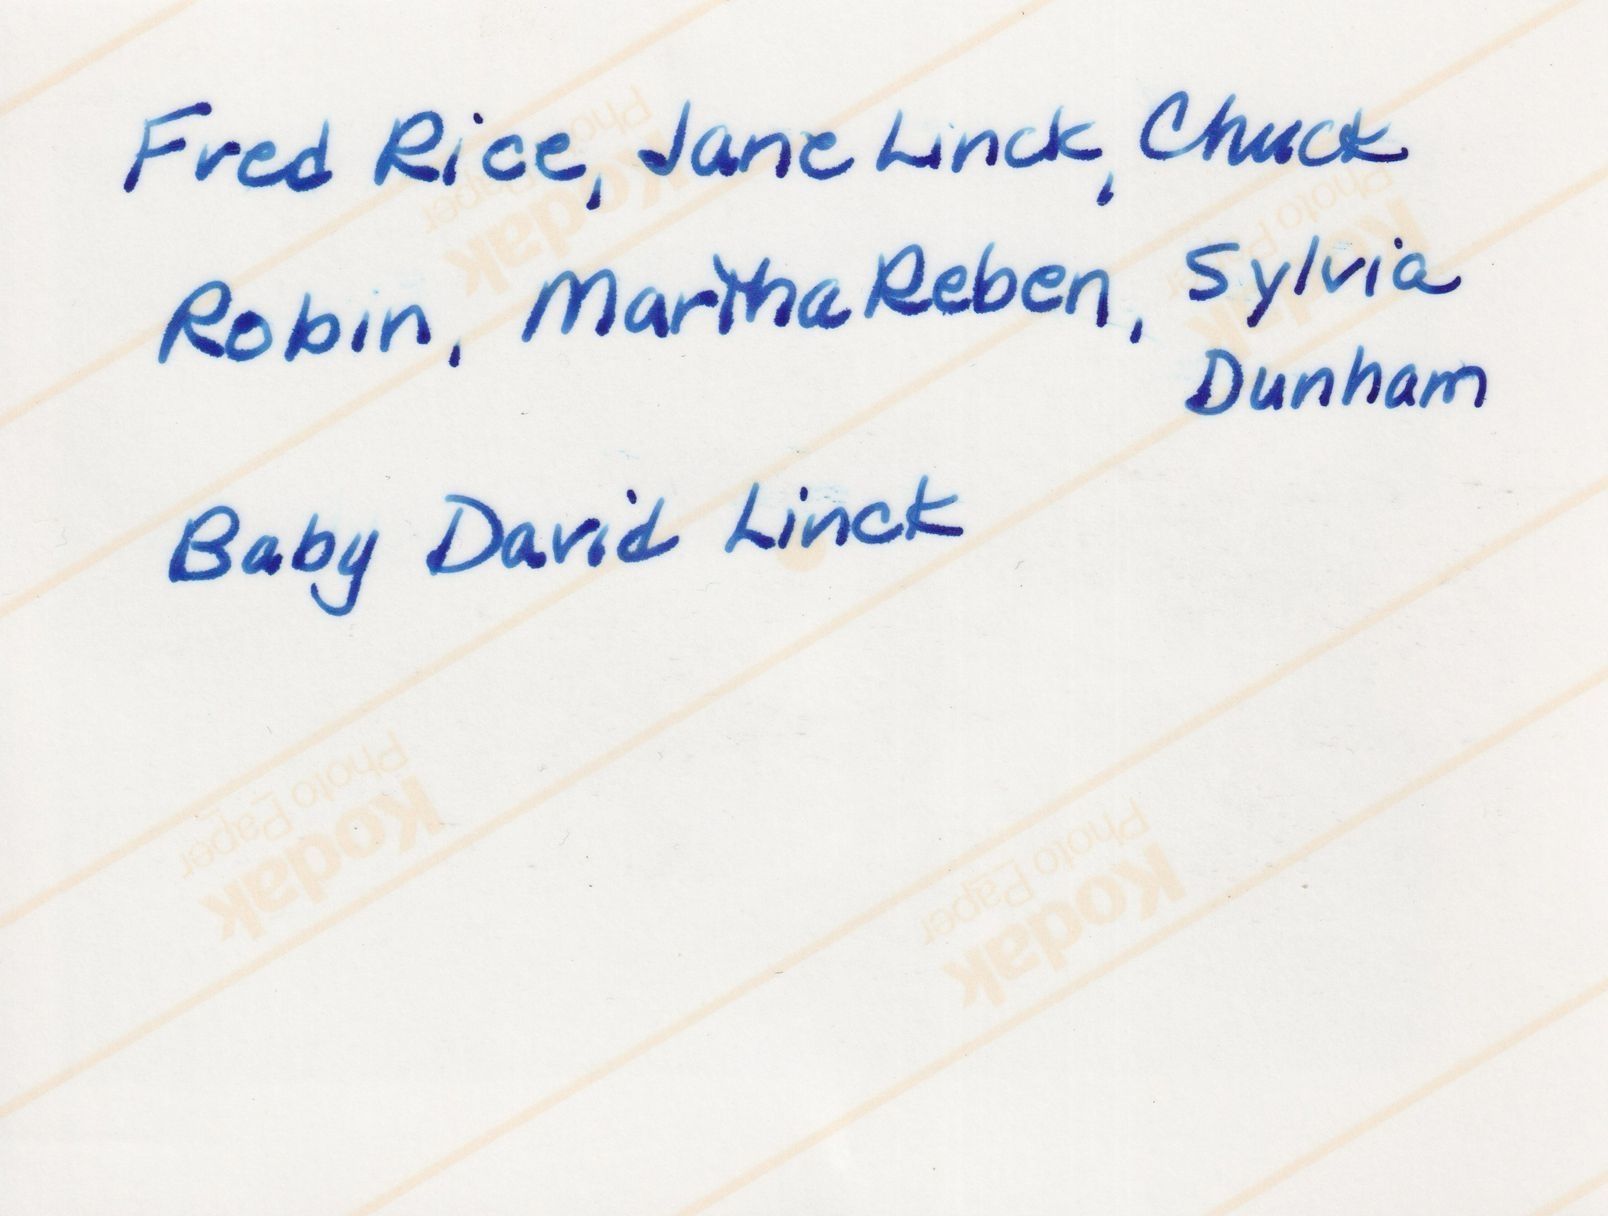 Fred Rice, Jane Linck, Chuck
Robin, Martha Reben, Sylvia
Dunham
Baby David Linck
Kodak
Photo Paper
Kodak
Photo Paper
Kodak
Photo Paper
Kodak
Photo Paper